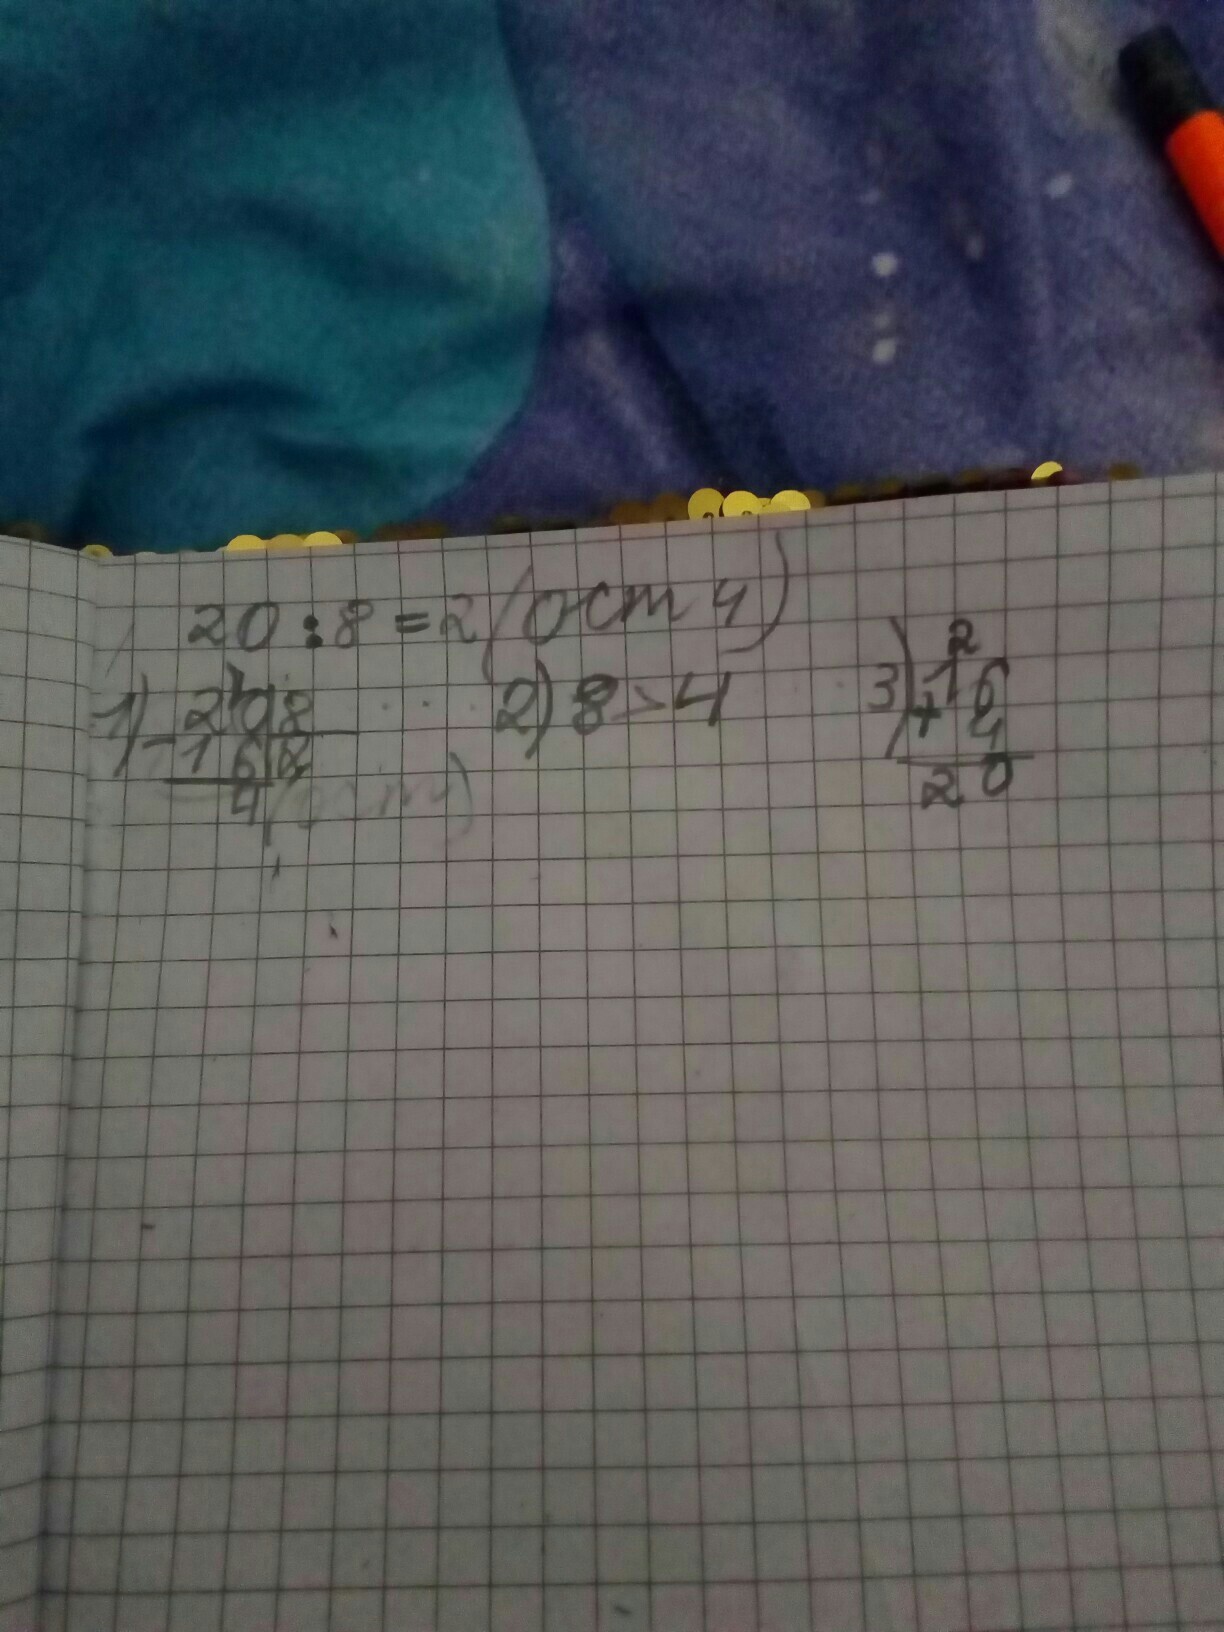 20:8=2(ост 4)
1) 20 8 2) 8>4 3) 2
- 16 2 + 16
4(ост) 4
20